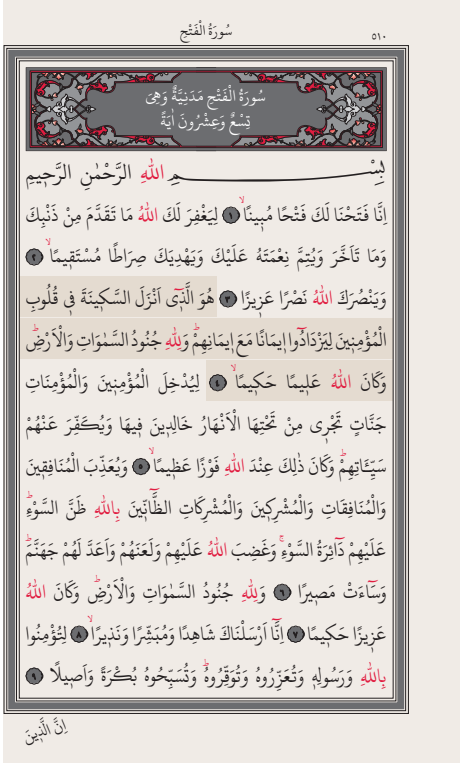 سُورَةُ الْفَتْحِ
٥١٠
سُورَةُ الْفَتْحِ مَدَنِيَّةٌ وَهِيَ
تِسْعٌ وَعِشْرُونَ اٰيَةً
بِسْمِ اللّٰهِ الرَّحْمٰنِ الرَّحٖيمِ
اِنَّا فَتَحْنَا لَكَ فَتْحًا مُبٖينًاۙ ﴿١﴾ لِيَغْفِرَ لَكَ اللّٰهُ مَا تَقَدَّمَ مِنْ ذَنْبِكَ
وَمَا تَاَخَّرَ وَيُتِمَّ نِعْمَتَهُ عَلَيْكَ وَيَهْدِيَكَ صِرَاطًا مُسْتَقٖيمًاۙ ﴿٢﴾
وَيَنْصُرَكَ اللّٰهُ نَصْرًا عَزٖيزًا ﴿٣﴾ هُوَ الَّذٖٓي اَنْزَلَ السَّكٖينَةَ فٖي قُلُوبِ
الْمُؤْمِنٖينَ لِيَزْدَادُٓوا اٖيمَانًا مَعَ اٖيمَانِهِمْۜ وَلِلّٰهِ جُنُودُ السَّمٰوَاتِ وَالْاَرْضِۜ
وَكَانَ اللّٰهُ عَلٖيمًا حَكٖيمًاۙ ﴿٤﴾ لِيُدْخِلَ الْمُؤْمِنٖينَ وَالْمُؤْمِنَاتِ
جَنَّاتٍ تَجْرٖي مِنْ تَحْتِهَا الْاَنْهَارُ خَالِدٖينَ فٖيهَا وَيُكَفِّرَ عَنْهُمْ
سَيِّـَٔاتِهِمْۜ وَكَانَ ذٰلِكَ عِنْدَ اللّٰهِ فَوْزًا عَظٖيمًاۙ ﴿٥﴾ وَيُعَذِّبَ الْمُنَافِقٖينَ
وَالْمُنَافِقَاتِ وَالْمُشْرِكٖينَ وَالْمُشْرِكَاتِ الظَّٓانّٖينَ بِاللّٰهِ ظَنَّ السَّوْءِۜ
عَلَيْهِمْ دَٓائِرَةُ السَّوْءِۚ وَغَضِبَ اللّٰهُ عَلَيْهِمْ وَلَعَنَهُمْ وَاَعَدَّ لَهُمْ جَهَنَّمَۜ
وَسَٓاءَتْ مَصٖيرًا ﴿٦﴾ وَلِلّٰهِ جُنُودُ السَّمٰوَاتِ وَالْاَرْضِۜ وَكَانَ اللّٰهُ
عَزٖيزًا حَكٖيمًا ﴿٧﴾ اِنَّٓا اَرْسَلْنَاكَ شَاهِدًا وَمُبَشِّرًا وَنَذٖيرًاۙ ﴿٨﴾ لِتُؤْمِنُوا
بِاللّٰهِ وَرَسُولِهٖ وَتُعَزِّرُوهُ وَتُوَقِّرُوهُۜ وَتُسَبِّحُوهُ بُكْرَةً وَاَصٖيلًا ﴿٩﴾
اِنَّ الَّذٖينَ